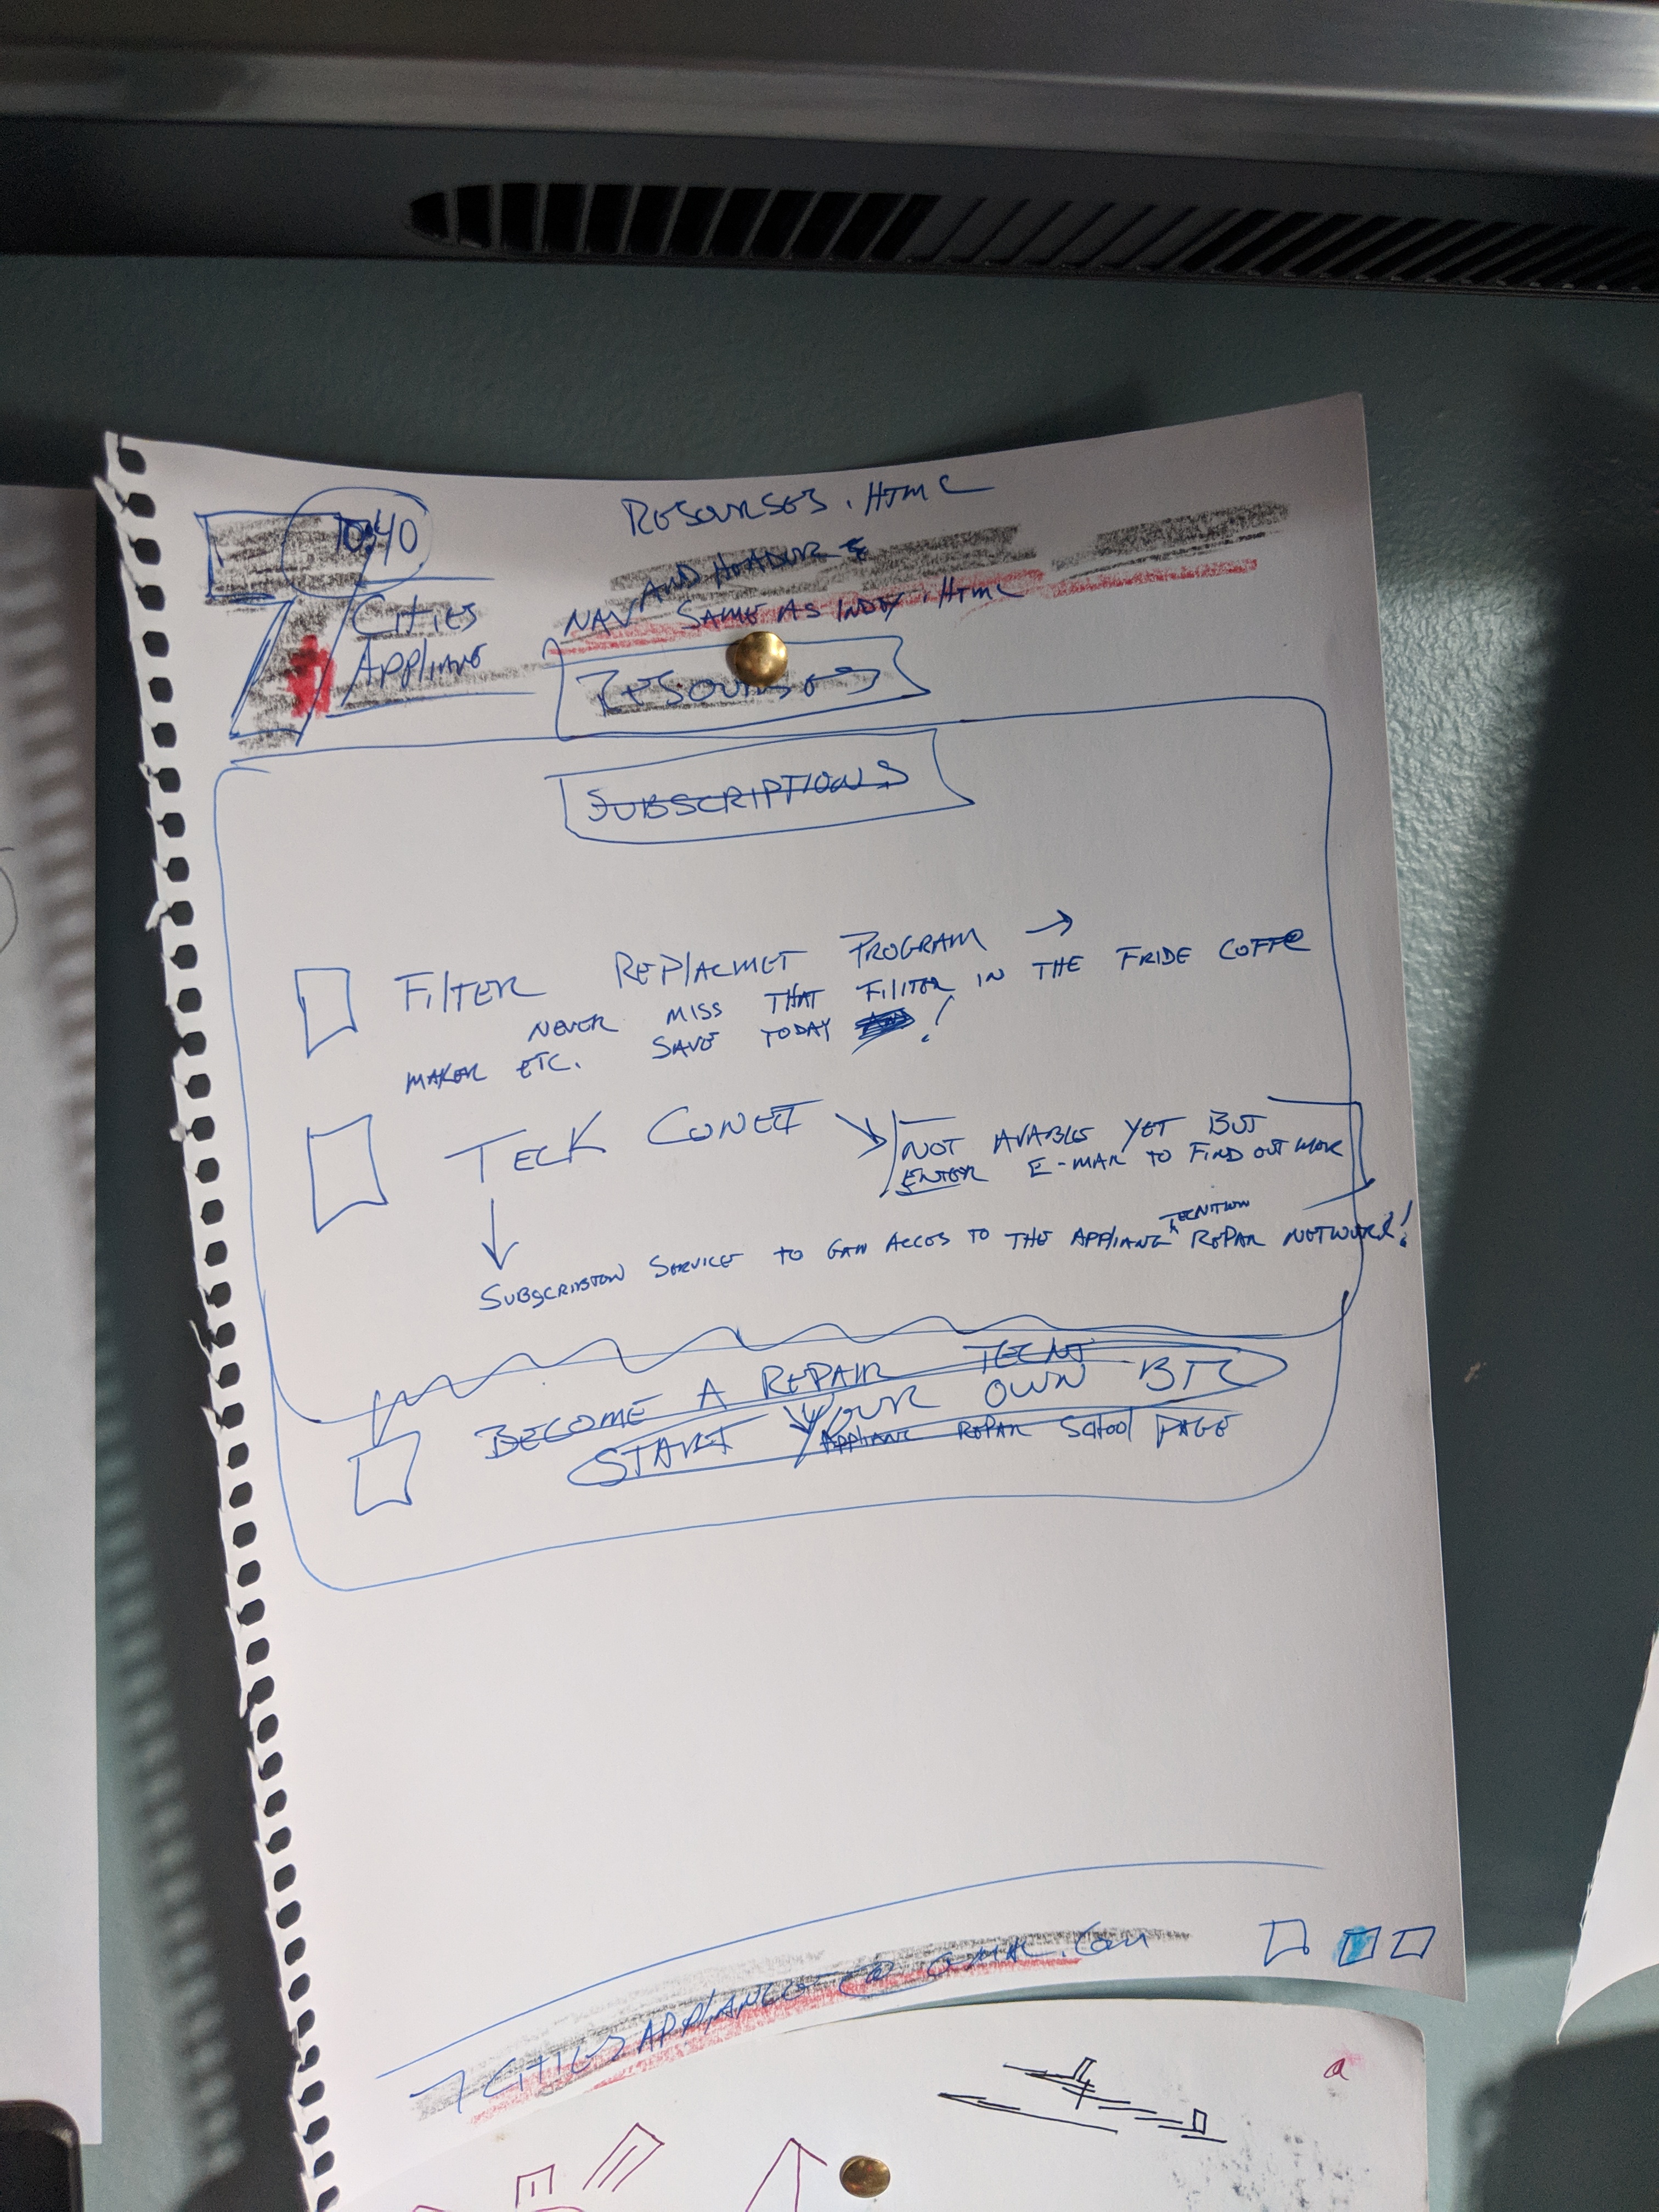 RESOURSES.HTML
10:40
AND HEADUR &
NAV SAME AS INDEX.HTML
7 Cities
Appliane
RESOURSES
SUBSCRIPTIONS
FILTER REPLACMET PROGRAM →
NEVER MISS THAT FILITER IN THE FRIDE COFFE
MAKER ETC. SAVE TODAY !
TECK CONECT
NOT AVABLE YET BUT
ENTER E-MAIL TO FIND OUT MORE
TECNITION
SUBSCRIBTION SERVICE TO GAIN ACCES TO THE APPLIANC REPAIR NETWORK!
BECOME A REPAIR TECNI
START YOUR OWN BIZ
APPLIANC REPAIR SCHOOL PAGE
7CITIESAPPLIANCE@GMAIL.COM
a